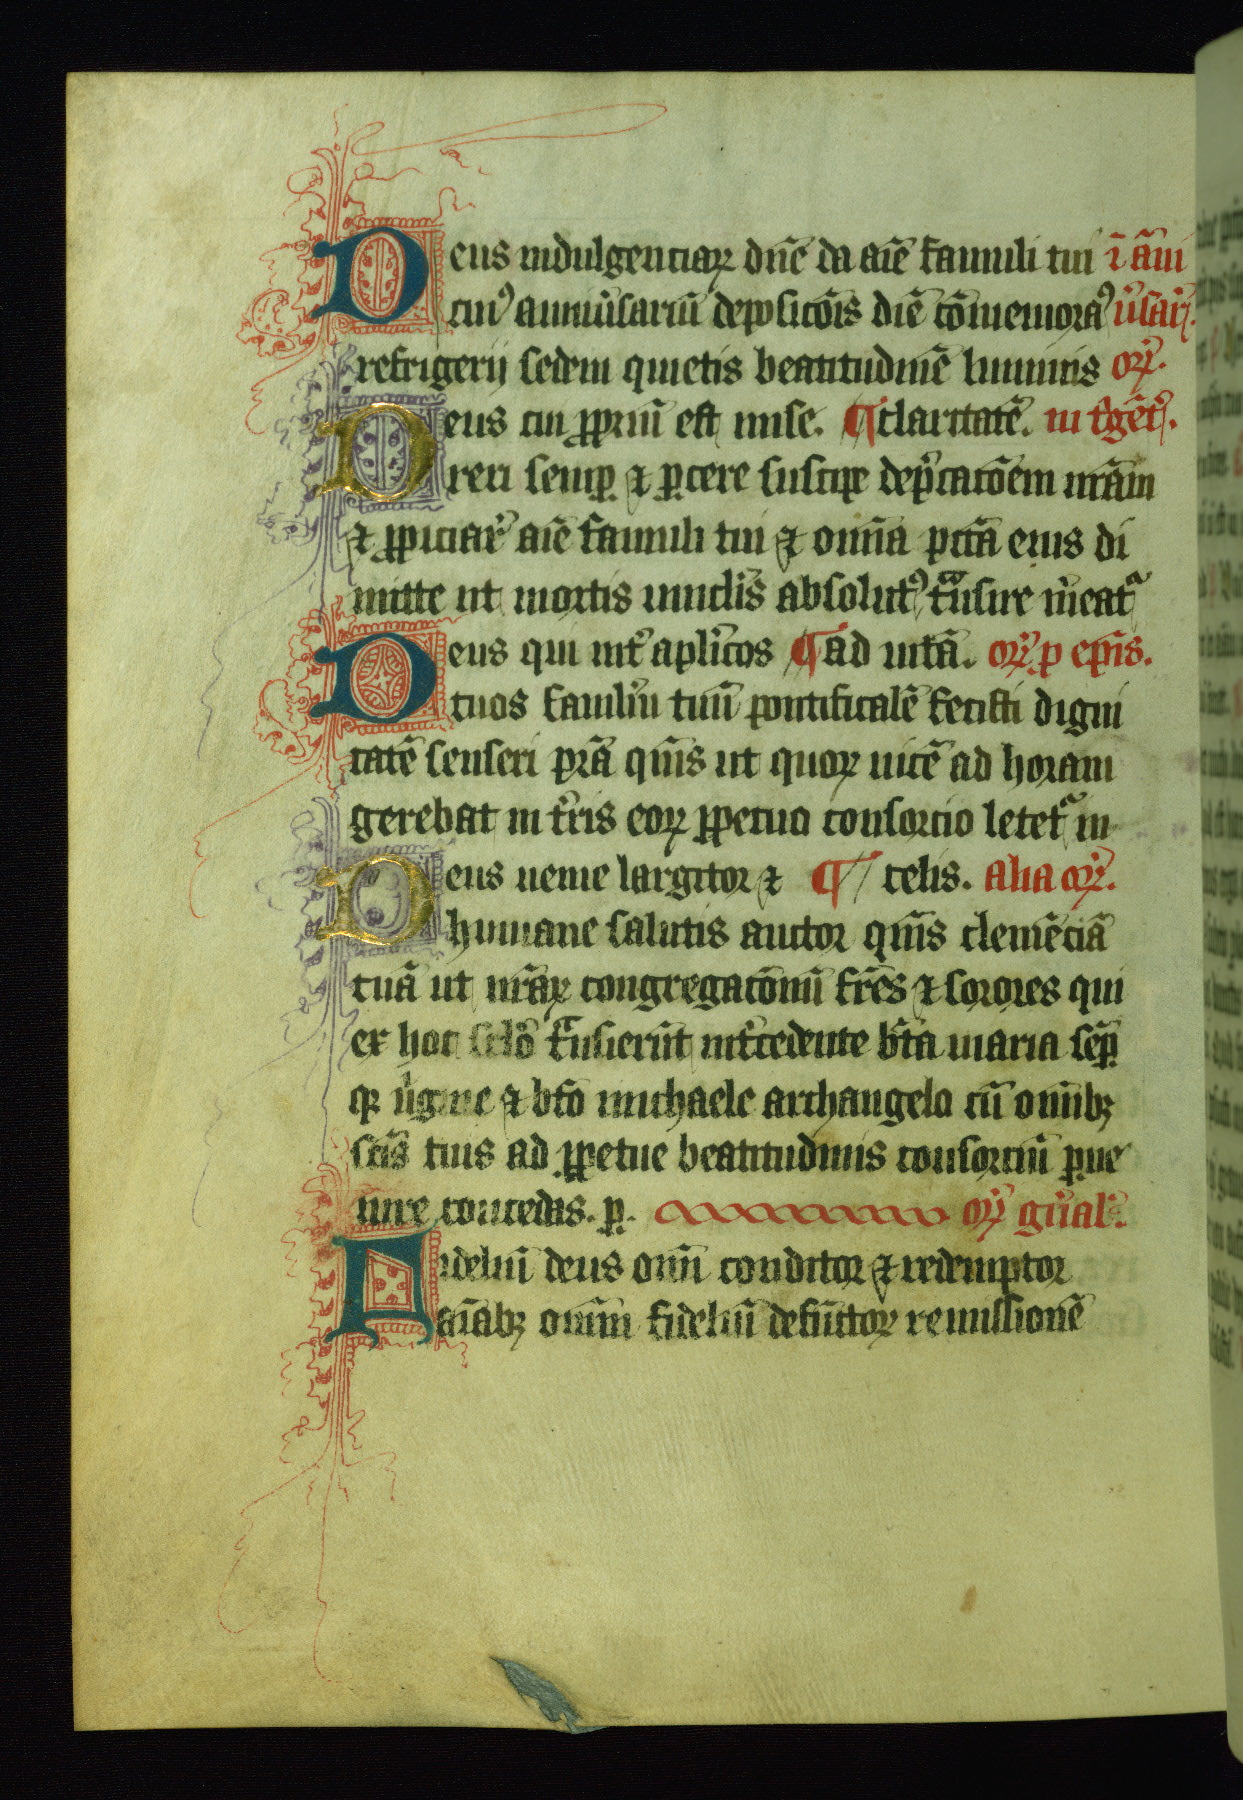 Deus indulgenciaꝝ dn̄e da aīe famuli tui ī āni
cuiꝰ anniu̾sariū deposicōis diē cōmemoraꝰ u̾sar̾.
refrigerij sedem quietis beatitudinē luminis or̾.
Deus cui ꝓpriū est mise. ¶ claritatē. in
reri semꝑ ⁊ ꝑcere suscipe dep̾catōem nr̄am
⁊ ꝓpiciar̾ aīe famuli tui ⁊ omīa pctā eius di
mitte ut mortis uinclis̾ absolutꝰ trāsire m̾eatᷓ
Deus qui int̾ aplicos ¶ ad uitā. or̾. ꝓ ep̄is.
tuos famulū tuū pontificalē fecisti digni
tatē censeri p̄ra q̄us ut quoꝝ uicē ad horam
gerebat in t̾ris eoꝝ ꝑpetuo consorcio letetᷓ in
Deus uenie largitor ⁊ ¶ celis. alia or̾.
humane salutis auctor q̄us clemēciā
tuā ut nr̄aꝝ congregatōnū fr̄es ⁊ sorores qui
ex hoc sc̄lo trāsierūt int̾cedente bt̄a maria sēꝑ
qꝫ u̾gine ⁊ bt̄o michaele archangelo cū omībꝫ
sc̄is tuis ad ꝑpetue beatitudinis consorciū ꝑue
nire concedas. ꝑ. or̾ gn̾al̾.
Fidelium deus om̄i conditor ⁊ redemptor
aīabꝫ omīm fideliū defūctoꝝ remissionē